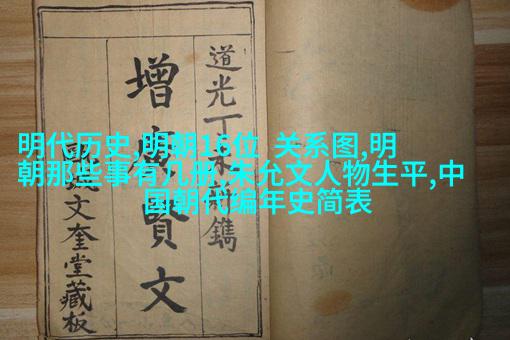 明代历史,明朝16位 关系图,明
朝那些事有几册,朱允文人物生平,中
国朝代编年史简表
道光丁未鐫
增廣賢文
文奎堂藏板